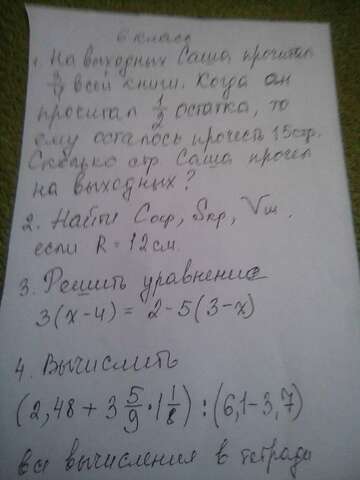 6 класс
1. На выходных Саша прочитал
всей книги. Когда он
прочитал 1/2 остатка, то
ему осталось прочесть 15 стр.
Сколько стр Саша прочел
на выходных?
2. Найти Cокр, Sкр, Vш.
если R = 12 см.
3. Решить уравнение
3(x-4) = 2-5(3-x)
4. Вычислить
(2,48 + 3 5/9 · 1 1/8) : (6,1-3,7)
все вычисления в тетради